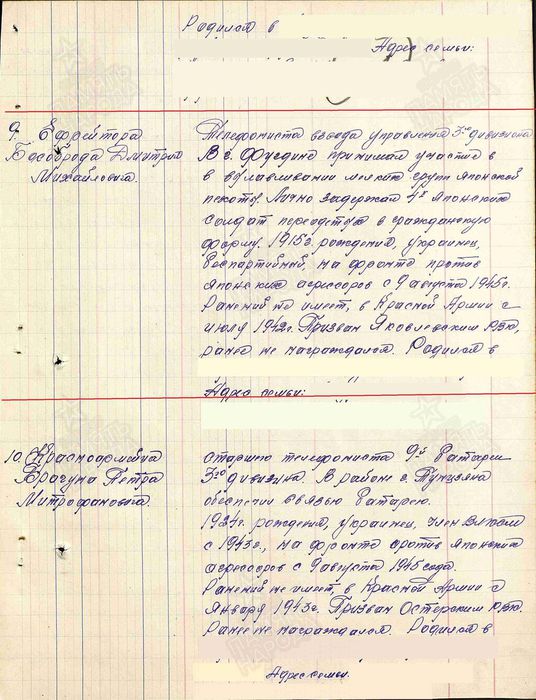 Родился в
Адрес семьи:
9. Ефрейтора
Безборода Дмитрия
Михайловича.
Телефониста взвода управления 3го дивизиона
В г. Фугдине принимал участие в
в вылавливании мелких групп японской
пехоты. Лично задержал 4х японских
солдат переодетых в гражданскую
форму. 1915г. рождения, украинец,
беспартийный, на фронте против
японских агрессоров с 9 августа 1945г.
Ранений не имеет, в Красной Армии с
июля 1942г. Призван Яковлевским РВК,
ранее не награждался. Родился в
Адрес семьи:
10. Красноармейца
Брагуна Петра
Митрофановича.
Старшего телефониста 9й батареи
3го дивизиона. В районе г. Тунцзяна
обеспечил связью батарею.
1924г. рождения, украинец, член ВЛКСМ
с 1943г., на фронте против японских
агрессоров с 9 августа 1945 года.
Ранений не имеет, в Красной Армии с
января 1943г. Призван Остерским РВК.
Ранее не награждался. Родился в
Адрес семьи.
ПАМЯТЬ
НАРОДА